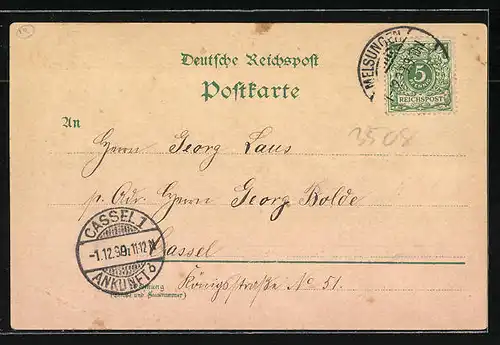 Deutsche Reichspost
Postkarte
MELSUNGEN
5
REICHSPOST
3508
An
Herrn Georg Laus
p. Adr. Herrn Georg Bolde
Cassel
Königsstraße No 51.
(Straße und Hausnummer)
CASSEL 1
-1.12.99. 11-12 V
ANKUNFT